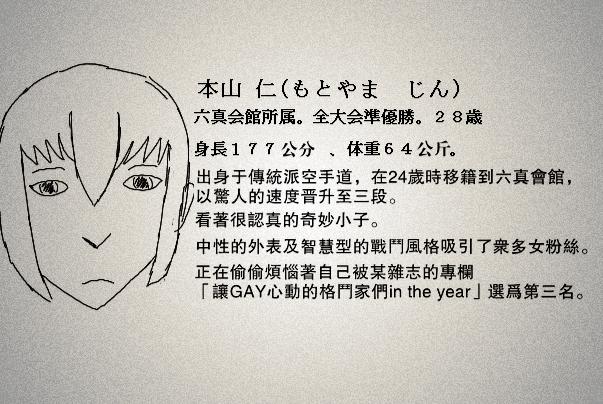 本山 仁(もとやま　じん)
六真会館所属。全大会準優勝。２８歳
身長１７７公分 、体重６４公斤。
出身于傳統派空手道，在24歲時移籍到六真會館，
以驚人的速度晉升至三段。
看著很認真的奇妙小子。
中性的外表及智慧型的戰鬥風格吸引了衆多女粉絲。
正在偷偷煩惱著自己被某雜志的專欄
「讓GAY心動的格鬥家們in the year」選爲第三名。